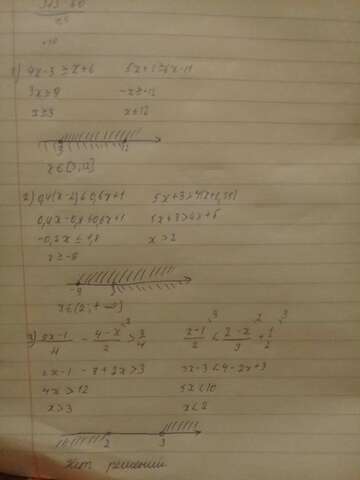 1) 4x-3 ≥ x+6    5x+1 ≥ 6x-11
3x ≥ 9    -x ≥ -12
x ≥ 3    x ≤ 12
3    12
x∈[3;12]
2) 0,4(x-2) ≤ 0,6x+1
0,4x-0,8 ≤ 0,6x+1    5x+3>4x+5
-0,2x ≤ 1,8    x>2
x ≥ -9
-9
x∈(2;+∞)
3) (2x-1)/4 - (4-x)/2 > 3/4    (x-1)/2 < (2-x)/3 + 1/2
2x-1 - 8+2x>3    3x-3<4-2x+3
4x>12    5x<10
x>3    x<2
2    3
Нет решений